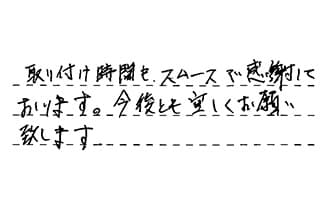 取り付け時間も、スムースで感謝して
おります。今後とも宜しくお願い
致します